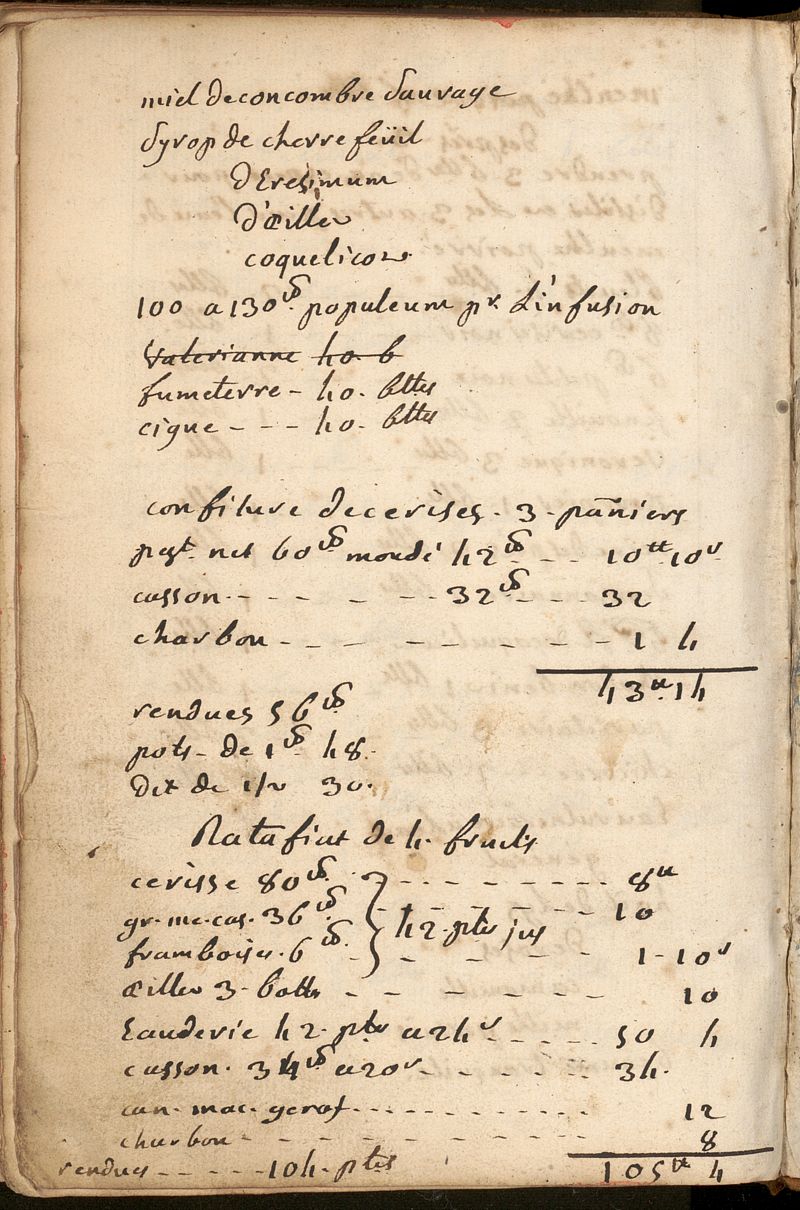 miel de concombre sauvage
Syrop de chevrefeüil
d'Eresimum
d'œillev
coquelicov.
100 a 130 lb populeum pr. L'infusion
valerianne 40 b
fumeterre - 40. bttes
cigue - - - 40. bttes
confiture de cerises. 3. pañiers
pest. net 60 lb mondé 42 lb - - - 10 tt 10 s
casson - - - - - - 32 lb - - - 32
charbon - - - - - - - - 1 4
43 tt 14
rendues 56 lb
pots - de 1 lb - 48.
Dit de 1/2 30.
Ratafiat de 4. fruits
cerisse 80 lb - - - - - - - - 8 tt
gr. me. cas. 36 lb - - - - - - - 10
42. ptes jus
framboises. 6 lb. - - - - - 1 - 10 s
œillev 3. botts - - - - - - 10
Eau de vie 42. ptes a 24 s - - - - - 50 4
casson. 34 lb a 20 s - - - - - - 34.
can. mac. gerof. - - - - - - - - 12
charbon - - - - - - - - - 8
rendues - - - - - 104. ptes 105 tt 4